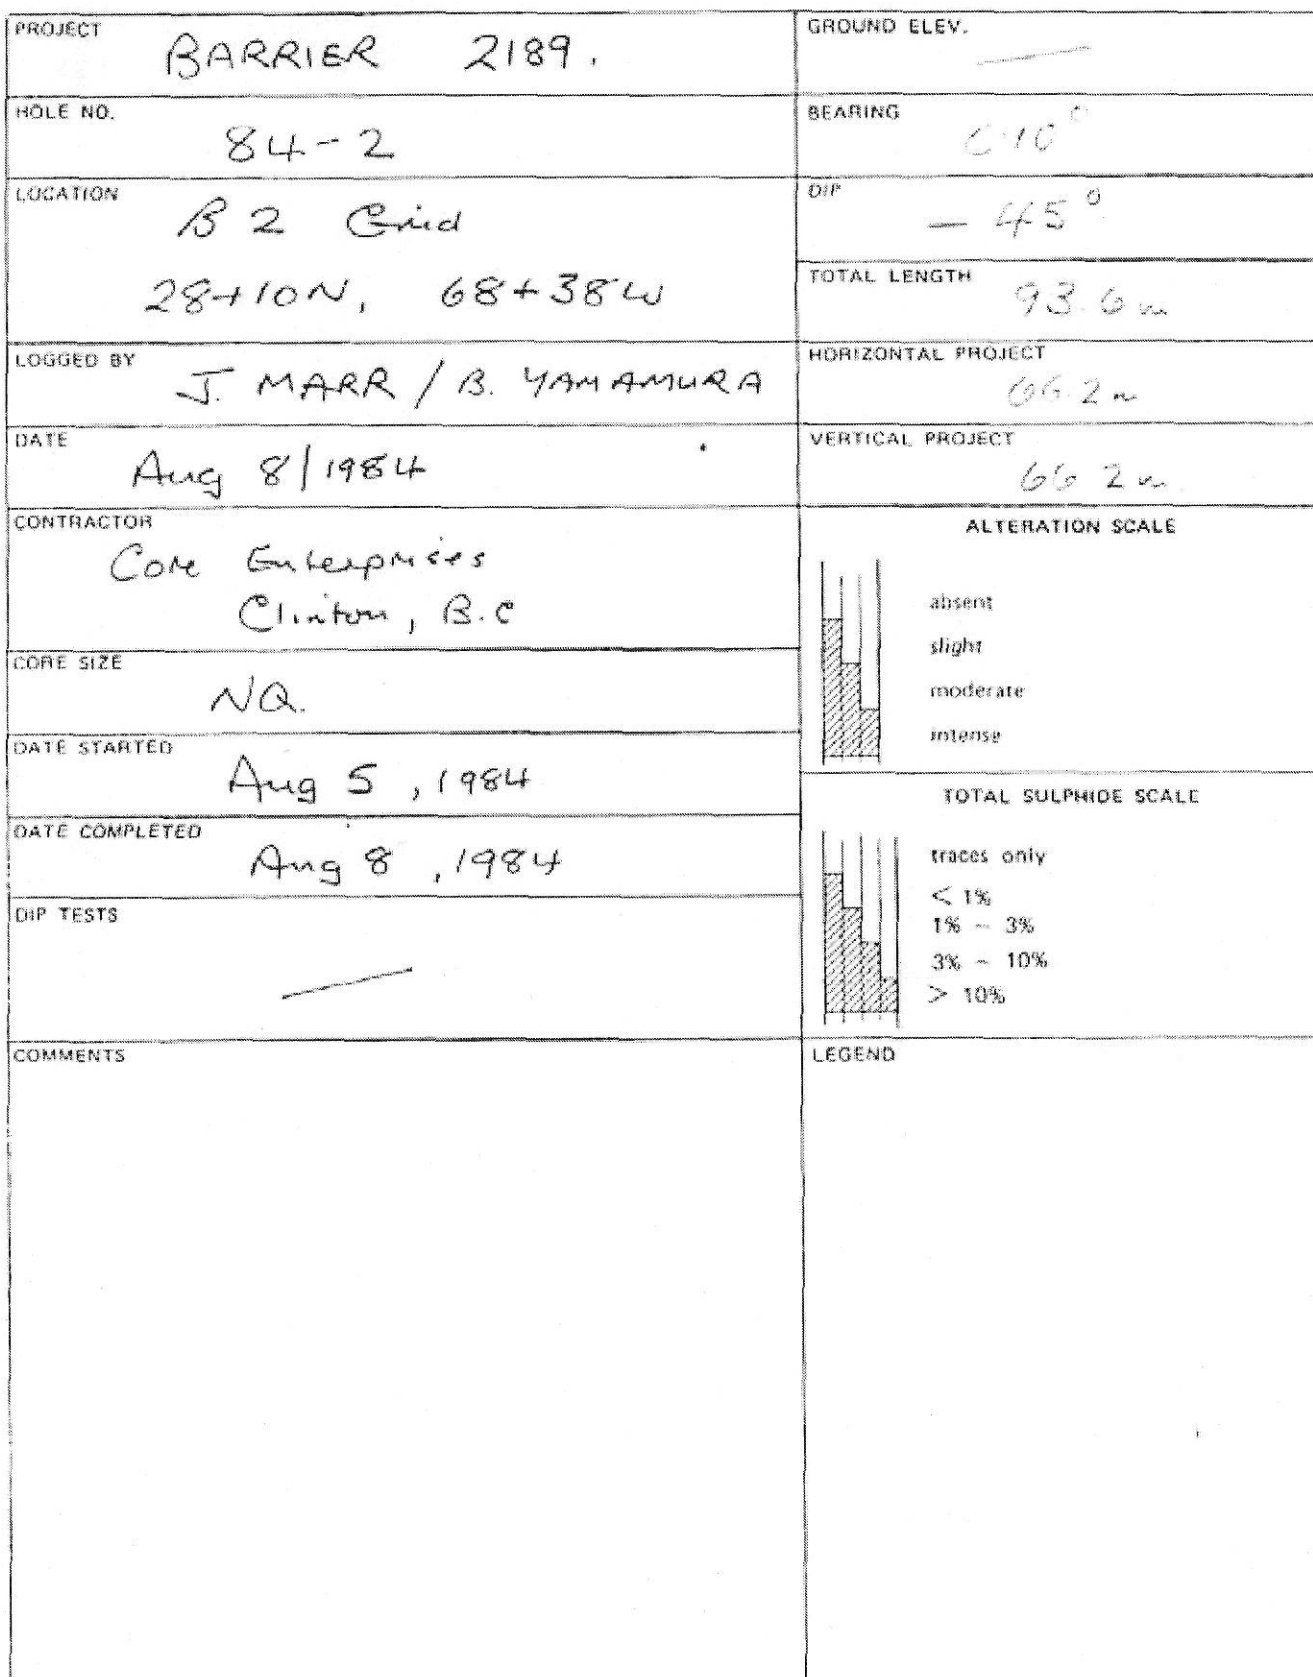 PROJECT
BARRIER 2189.
HOLE NO.
84-2
LOCATION
B2 Grid
28+10N, 68+38W
LOGGED BY
J. MARR / B. YAMAMURA
DATE
Aug 8/1984
CONTRACTOR
Core Enterprises
Clinton, B.C
CORE SIZE
NQ.
DATE STARTED
Aug 5, 1984
DATE COMPLETED
Aug 8, 1984
DIP TESTS
COMMENTS
GROUND ELEV.
BEARING
010°
DIP
- 45°
TOTAL LENGTH
93.6 m
HORIZONTAL PROJECT
66.2 m
VERTICAL PROJECT
66 2 m
ALTERATION SCALE
absent
slight
moderate
intense
TOTAL SULPHIDE SCALE
traces only
< 1%
1% - 3%
3% - 10%
> 10%
LEGEND